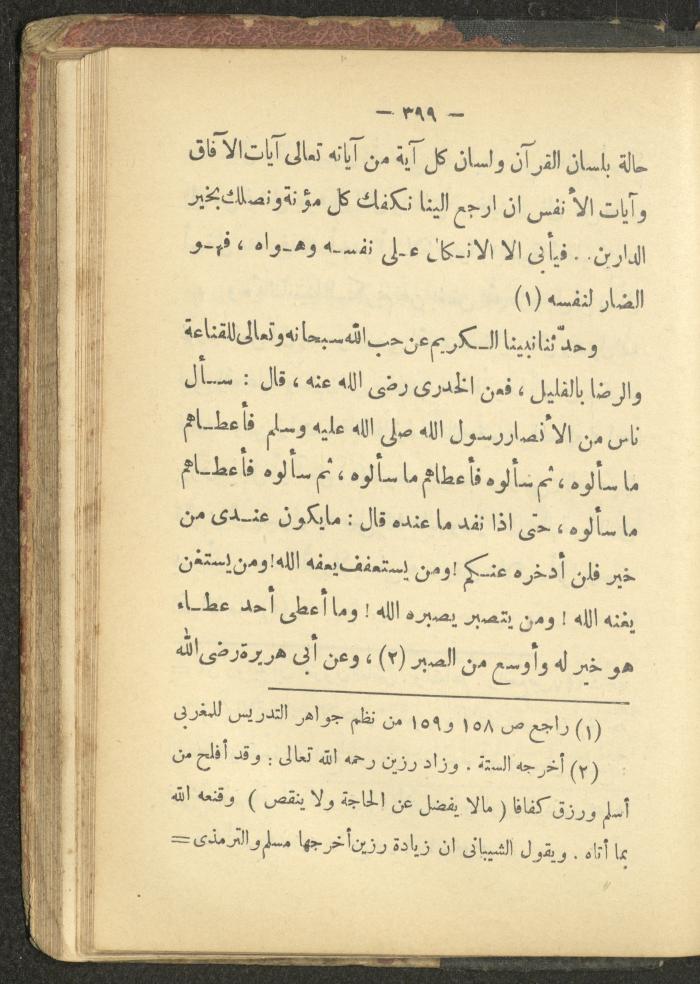 — ٣٩٩ —
حالة بلسان القرآن ولسان كل آية من آياته تعالى آيات الآفاق
وآيات الأنفس ان ارجع الينا نكفك كل مؤنة ونصلك بخير
الدارين. . فيأبى الا الاتـكال عـلى نفسـه وهـواه ، فهـو
الضار لنفسه (١)
وحدّثنا نبينا الـكريم عن حب الله سبحانه وتعالى للقناعة
والرضا بالقليل ، فعن الخدرى رضى الله عنه ، قال : سـأل
ناس من الأنصار رسول الله صلى الله عليه وسلم فأعطـاهم
ما سألوه ، ثم سألوه فأعطاهم ما سألوه ، ثم سألوه فأعطـاهم
ما سألوه ، حتى اذا نفد ما عنده قال : مايكون عنـدى من
خير فلن أدخره عنـكم ! ومن يستعفف يعفه الله ! ومن يستغن
يغنه الله ! ومن يتصبر يصبره الله ! وما أعطى أحد عطـاء
هو خير له وأوسع من الصبر (٢) ، وعن أبى هريرة رضى الله
(١) راجع ص ١٥٨ و ١٥٩ من نظم جواهر التدريس للمغربى
(٢) أخرجه الستة . وزاد رزين رحمه الله تعالى : وقد أفلح من
أسلم ورزق كفافا ( مالا يفضل عن الحاجة ولا ينقص ) وقنعه الله
بما أتاه . ويقول الشيبانى ان زيادة رزين أخرجها مسلم والترمذى =